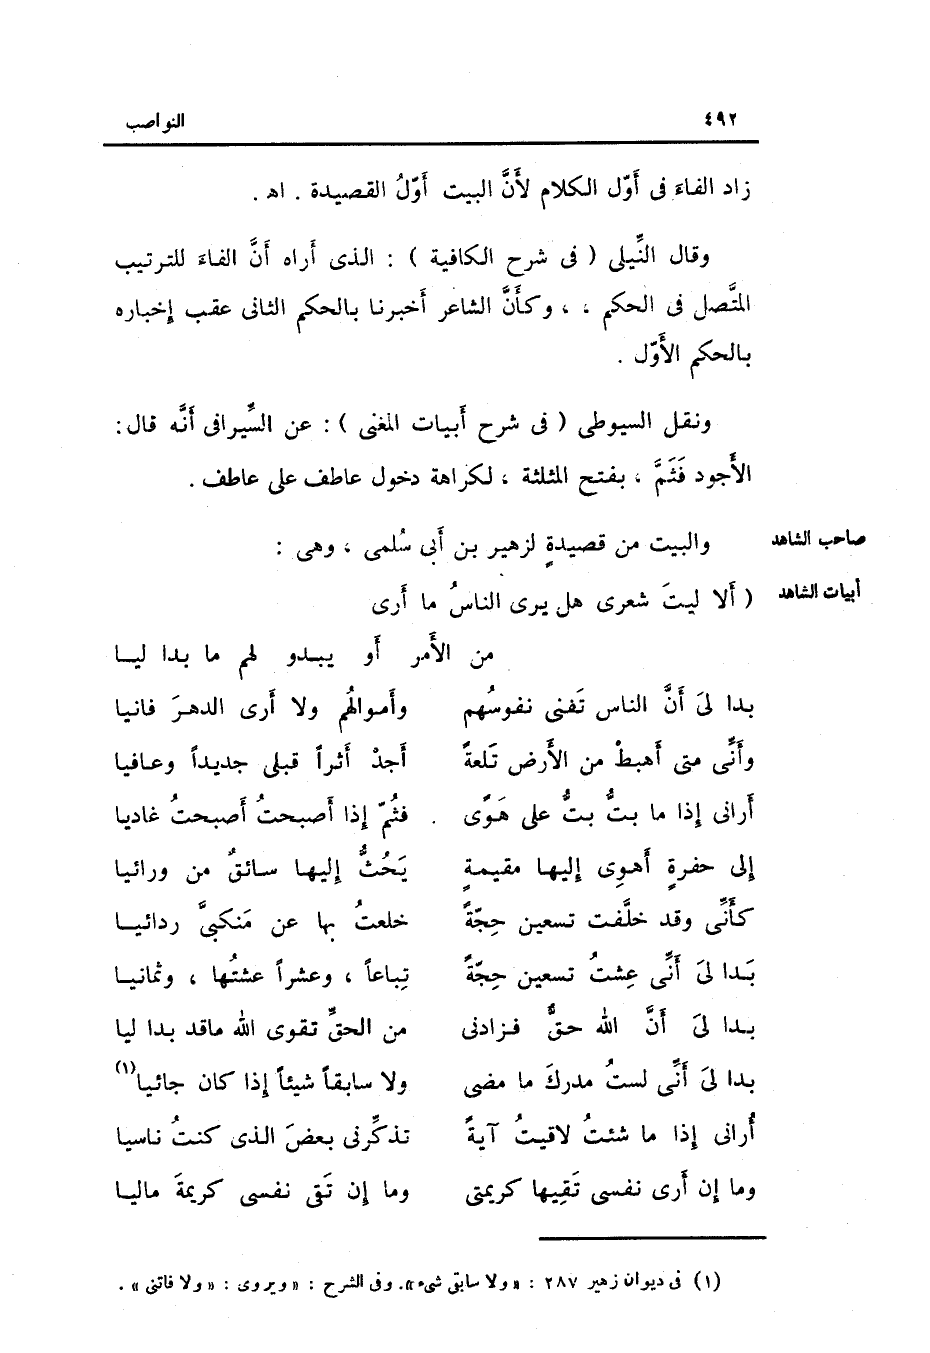 ٤٩٢ النواصب
زاد الفاءَ فى أَوّل الكلام لأَنَّ البيت أَوّلُ القصيدة . اهـ .
وقال النِّيلى ( فى شرح الكافية ) : الذى أَراه أَنَّ الفاءَ للترتيب
المتَّصل فى الحكم ، ، وكأَنَّ الشاعر أَخبرنا بالحكم الثانى عقب إِخباره
بالحكم الأَوّل .
ونقل السيوطى ( فى شرح أَبيات المغنى ) : عن السِّيرافى أَنَّه قال :
الأَجود فَثَمَّ ، بفتح المثلثة ، لكراهة دخول عاطف على عاطف .
صاحب الشاهد والبيت من قصيدةٍ لزهير بن أَبى سُلمى ، وهى :
أبيات الشاهد ( أَلا ليتَ شعرى هل يرى الناسُ ما أَرى
من الأَمر أَو يبدو لهم ما بدا ليا
بدا لىَ أَنَّ الناس تَفنى نفوسُهم وأَموالُهم ولا أَرى الدهرَ فانيا
وأَنِّى متى أَهبطْ من الأَرض تَلعةً أَجدْ أَثراً قبلى جديداً وعافيا
أَرانى إِذا ما بتُّ بتُّ على هَوًى . فثُمّ إِذا أَصبحتُ أَصبحتُ غاديا
إلى حفرةٍ أَهوِى إِليها مقيمةٍ يَحُثُّ إِليها سائقٌ من ورائيا
كأَنِّى وقد خلَّفت تسعين حِجّةً خلعتُ بها عن مَنكبىَّ ردائيا
بَدا لىَ أَنِّى عِشتُ تسعين حِجّةً تِباعاً ، وعشراً عشتُها ، وثمانيا
بدا لىَ أَنَّ الله حقٌّ فزادنى من الحقِّ تقوى الله ماقد بدا ليا
بدا لىَ أَنِّى لستُ مدركَ ما مضى ولا سابقاً شيئاً إِذا كان جائيا(١)
أُرانى إِذا ما شئتُ لاقيتُ آيةً تذكِّرنى بعضَ الذى كنتُ ناسيا
وما إن أَرى نفسى تَقِيها كريمتى وما إن تَقى نفسى كريمةَ ماليا
(١) فى ديوان زهير ٢٨٧ : « ولا سابق شىء ». وفى الشرح : « ويروى : « ولا فاتنى » .